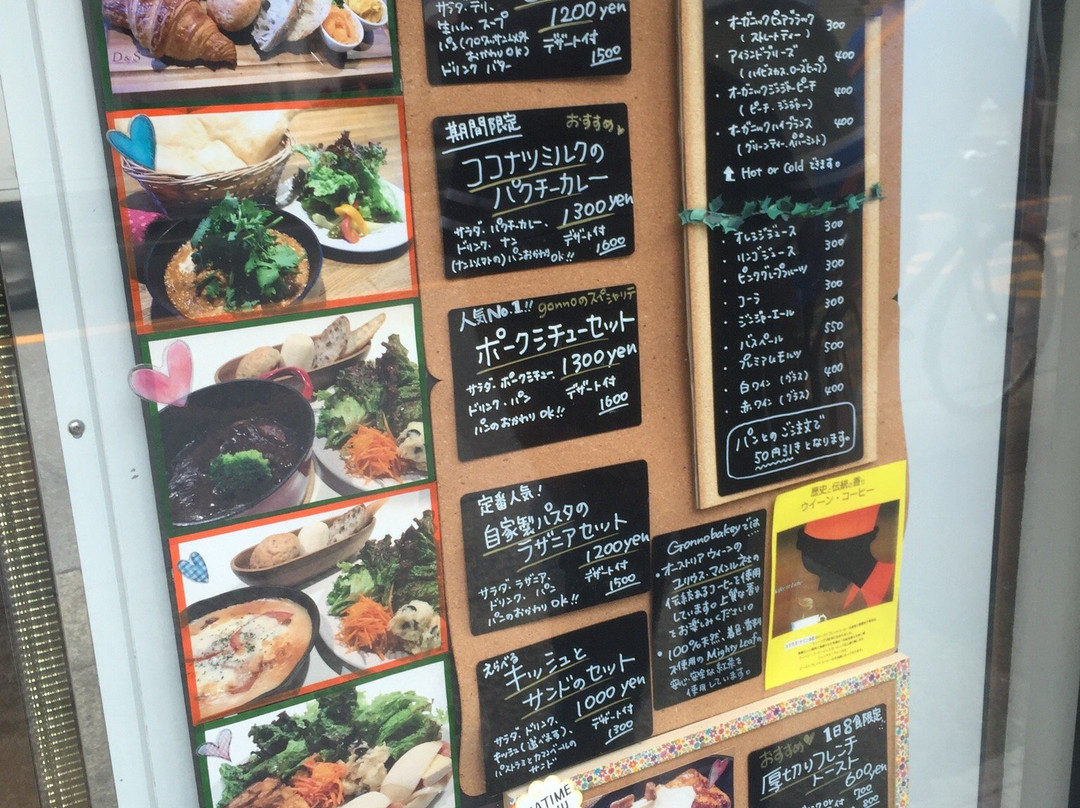 D&S
サラダ・デリ、
生ハム、スープ
パン(クロワッサン以外
おかわりOK)
ドリンク バター
1200yen
デザート付
1500
期間限定 おすすめ
ココナツミルクの
パクチーカレー
1300yen
サラダ・パクチーカレー、
ドリンク、ナン
(ナン以外の)パンおかわりOk!!
デザート付
1600
人気No.1!! gonnoのスペシャリテ
ポークシチューセット
1300yen
サラダ・ポークシチュー
ドリンク・パン
パンのおかわりOk!!
デザート付
1600
定番人気!
自家製パスタの
ラザニアセット
1200yen
サラダ、ラザニア、
ドリンク、パン
パンのおかわりOk!!
デザート付
1500
えらべる
キッシュと
サンドのセット
1000yen
サラダ、ドリンク、
キッシュ(選べます)、
パストラミとカマンベールの
サンド
デザート付
1300
・オーガニックピュアブラック 300
(ストレートティー)
・アイランドブリーズ 400
(ハイビスカス、ローズヒップ)
・オーガニックジンジャーピーチ 400
(ピーチ、ジンジャー)
・オーガニックハイブランス 400
(グリーンティー、ペパーミント)
⬆ Hot or Cold できます。
・オレンジジュース 300
・リンゴジュース 300
・ピンクグレープフルーツ 300
・コーラ 300
・ジンジャーエール 300
・バスペール 550
・プレミアムモルツ 500
・白ワイン(グラス) 400
・赤ワイン(グラス) 400
パンとのご注文で
50円引きとなります。
Gonnobakeyでは
・オーストリアウィーンの
ユリウス・マインル社の
伝統あるコーヒーを使用
しています。上質な香り
をお楽しみください。
・100%天然、着色・香料
不使用のMighty Leafの
安心・安全な紅茶を
使用しています。
歴史と伝統の香り
ウイーン・コーヒー
おすすめ 1日8食限定
厚切りフレンチ
トースト
600yen
700
800